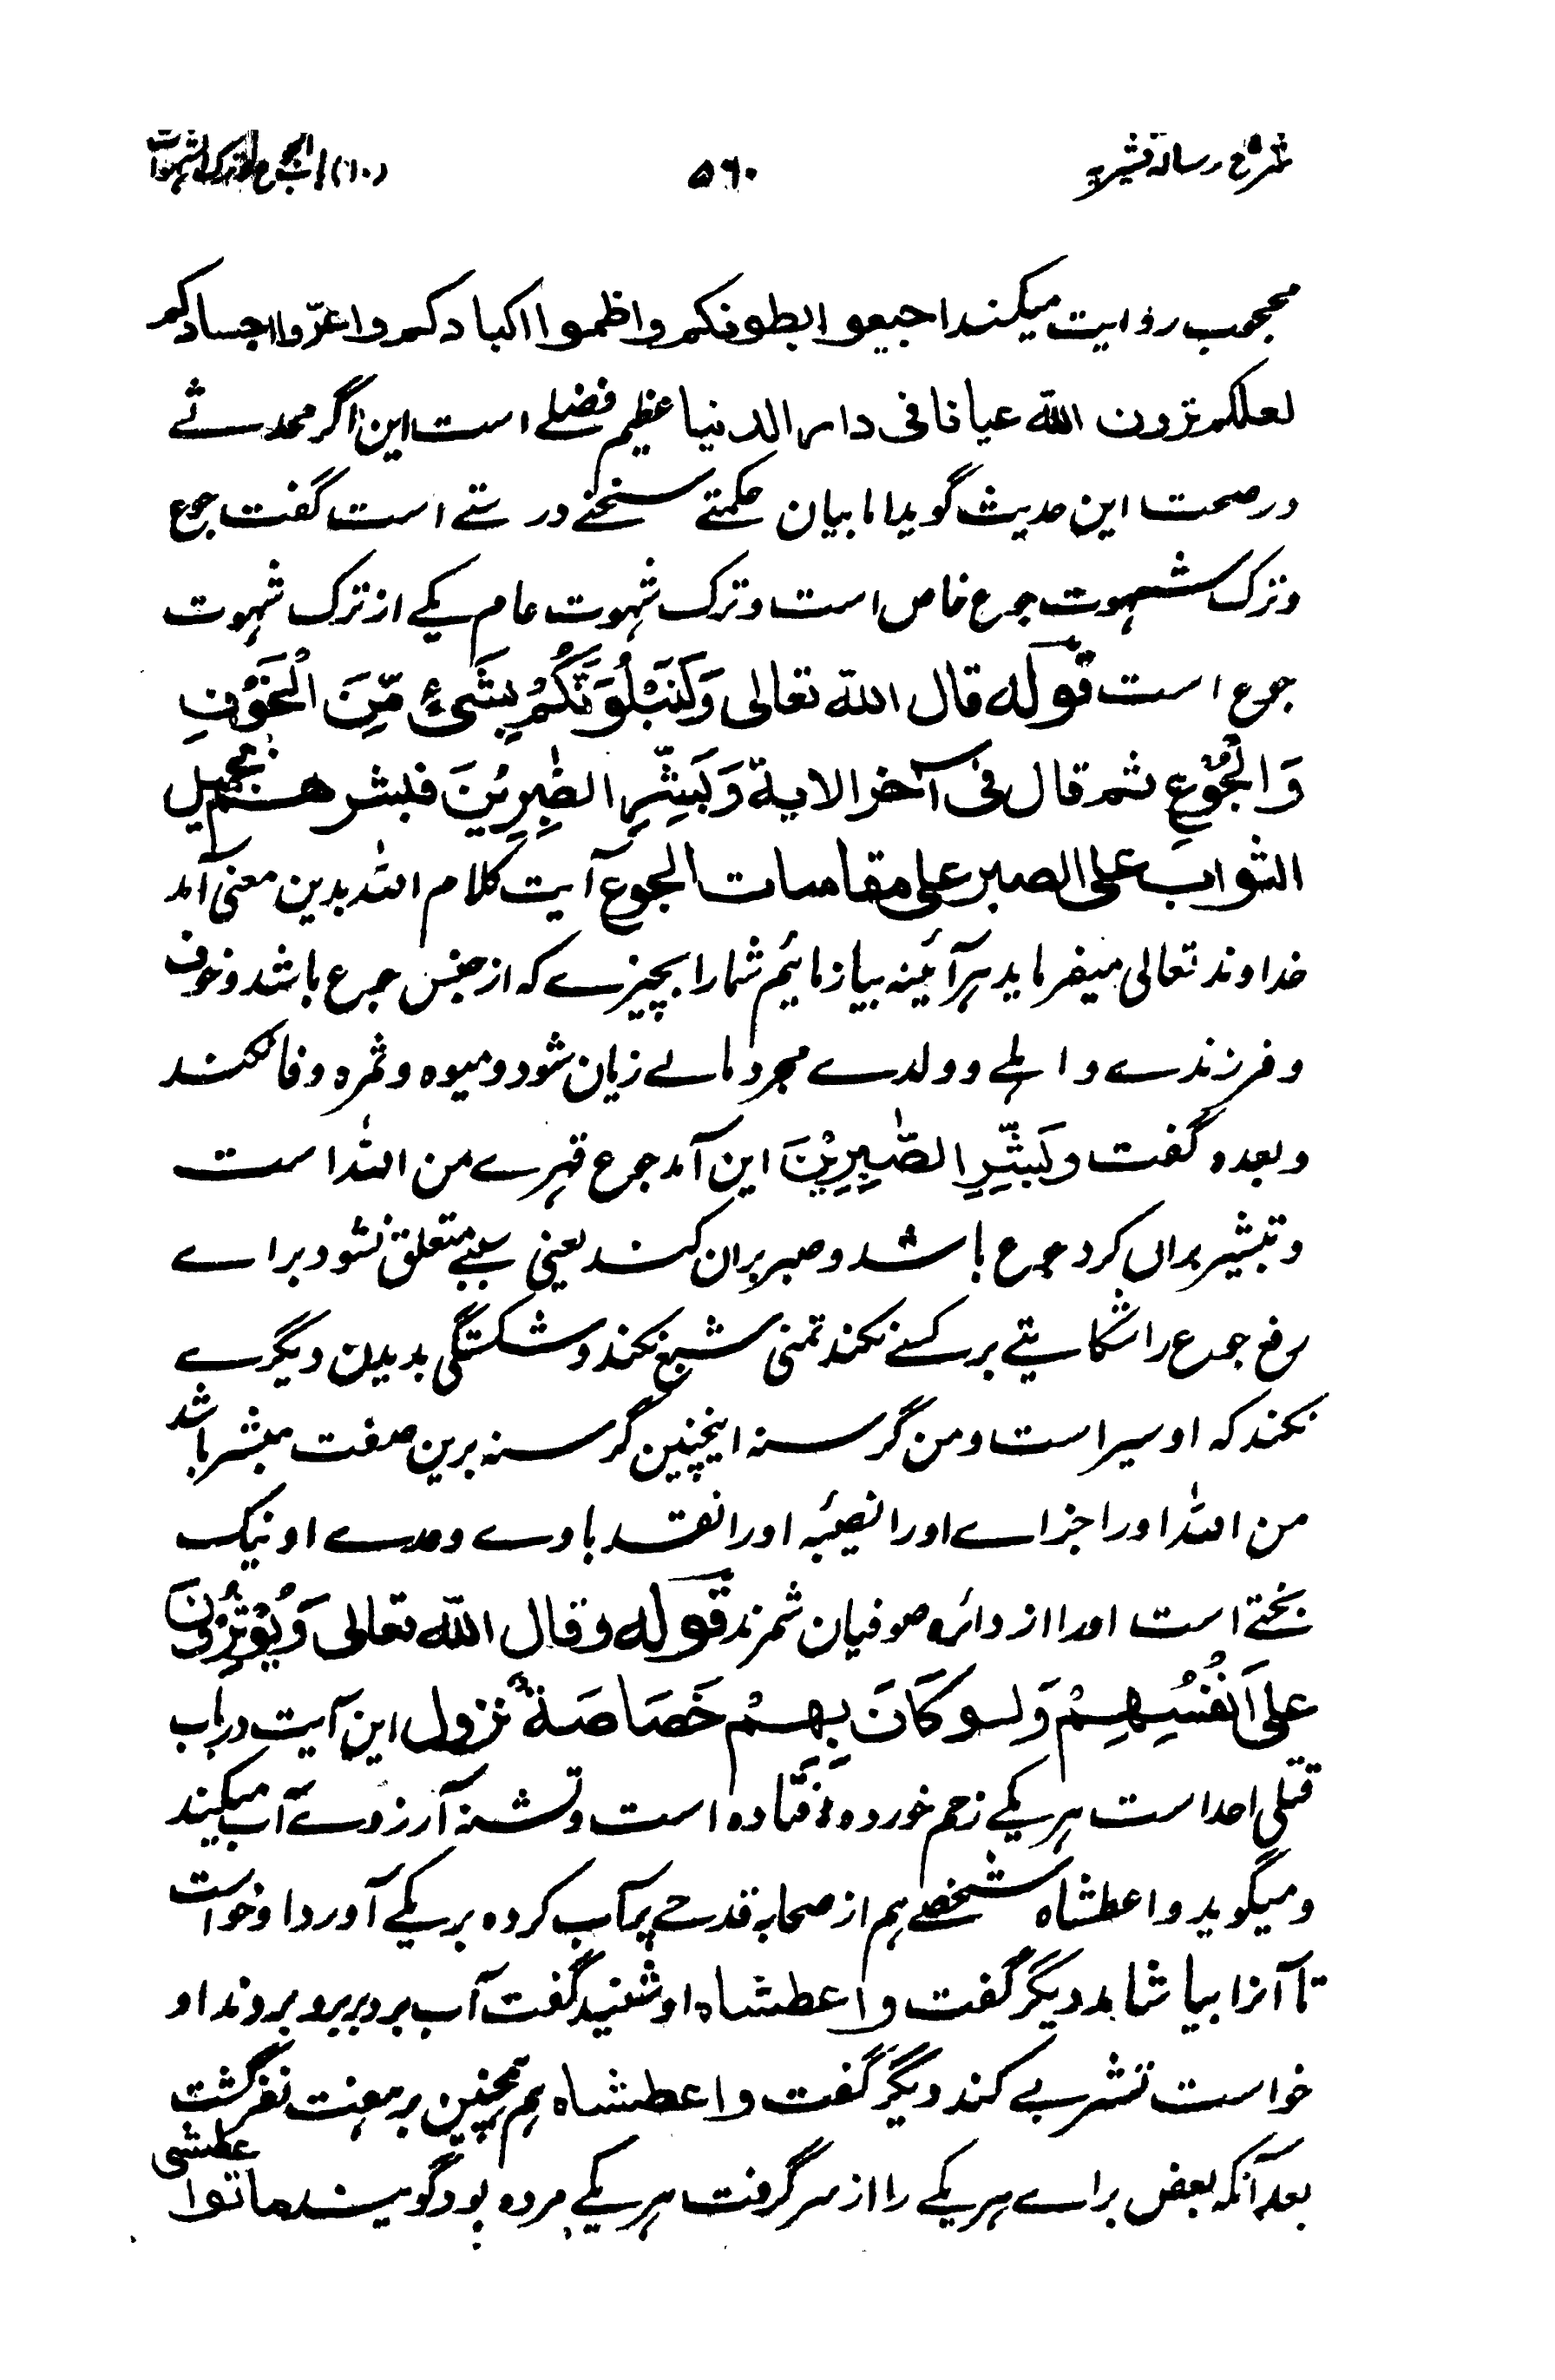 شرح رسالہ قشیریہ ۵۶۰ (۱۰) باب الجوع و ترک الشہوات
محجوب روایت میکند اجیعوا بطونکم واظمؤا اکبادکم واعرّوا اجسادکم
لعلکم ترون اللہ عیانا فی دار الدنیا عظیم فضلے است این اگر محدثے
در صحت این حدیث گوید اما بیان حکمتے سخنے درستے است گفت جوع
و ترک شہوت جوع خاص است و ترک شہوت عام یکے از ترک شہوت
جوع است قولہ قال اللہ تعالی وَلَنَبْلُوَنَّكُمْ بِشَیْءٍ مِّنَ الْخَوْفِ
وَالْجُوْعِ ثم قال فی آخر الایة وَبَشِّرِ الصّٰبِرِیْنَ فبشرهم بجمیل
الثواب علی الصبر علی مقاسات الجوع آیت کلام اللہ بدین معنی آمد
خداوند تعالی میفرماید ہر آئینہ بیازمائیم شمارا بچیزے کہ از جنس جوع باشد و خوف
و فرزندے و اہلے و ولدے مجرد مالے زیان شود و میوہ و ثمرہ وفا نکند
و بعدہ گفت وَبَشِّرِ الصّٰبِرِیْنَ این آمد جوع قہرے من اللہ است
و تبشیر بران کرد جوع باشد و صبر بران کند یعنی سببے متعلق نشود براے
رفع جوع را شکایتے بر کسے نکند تمنی شبع نکند و شکستگی بدیدن دیگرے
نکند کہ او سیر است و من گرسنہ اینچنین گرسنہ برین صفت مبشر باشد
من اللہ اورا جزاے اورا نصیبہ اورا نقد با وے وعدے او نیک
بختے است اورا از دائرہ صوفیان شمرند قولہ و قال اللہ تعالی وَیُؤْثِرُوْنَ
عَلٰی اَنْفُسِهِمْ وَلَوْ كَانَ بِهِمْ خَصَاصَةٌ نزول این آیت در باب
قتلی احد است ہر یکے زخم خوردہ افتادہ است و تشنہ آرزوے آب میکند
و میگوید واعطشاہ شخصے ہم از صحابہ قدحے پر آب کردہ بر یکے آورد او خواست
تا آنرا بیاشامد دیگر گفت واعطشاہ او شنید گفت آب برو ببر برو بردند او
خواست تشربے کند دیگر گفت واعطشاہ ہم چنین بر ہفت نفر گشت
بعد آنکہ بعض براے ہر یکے را از سر گرفت ہر یکے مردہ بود گویند ماتوا عطشی